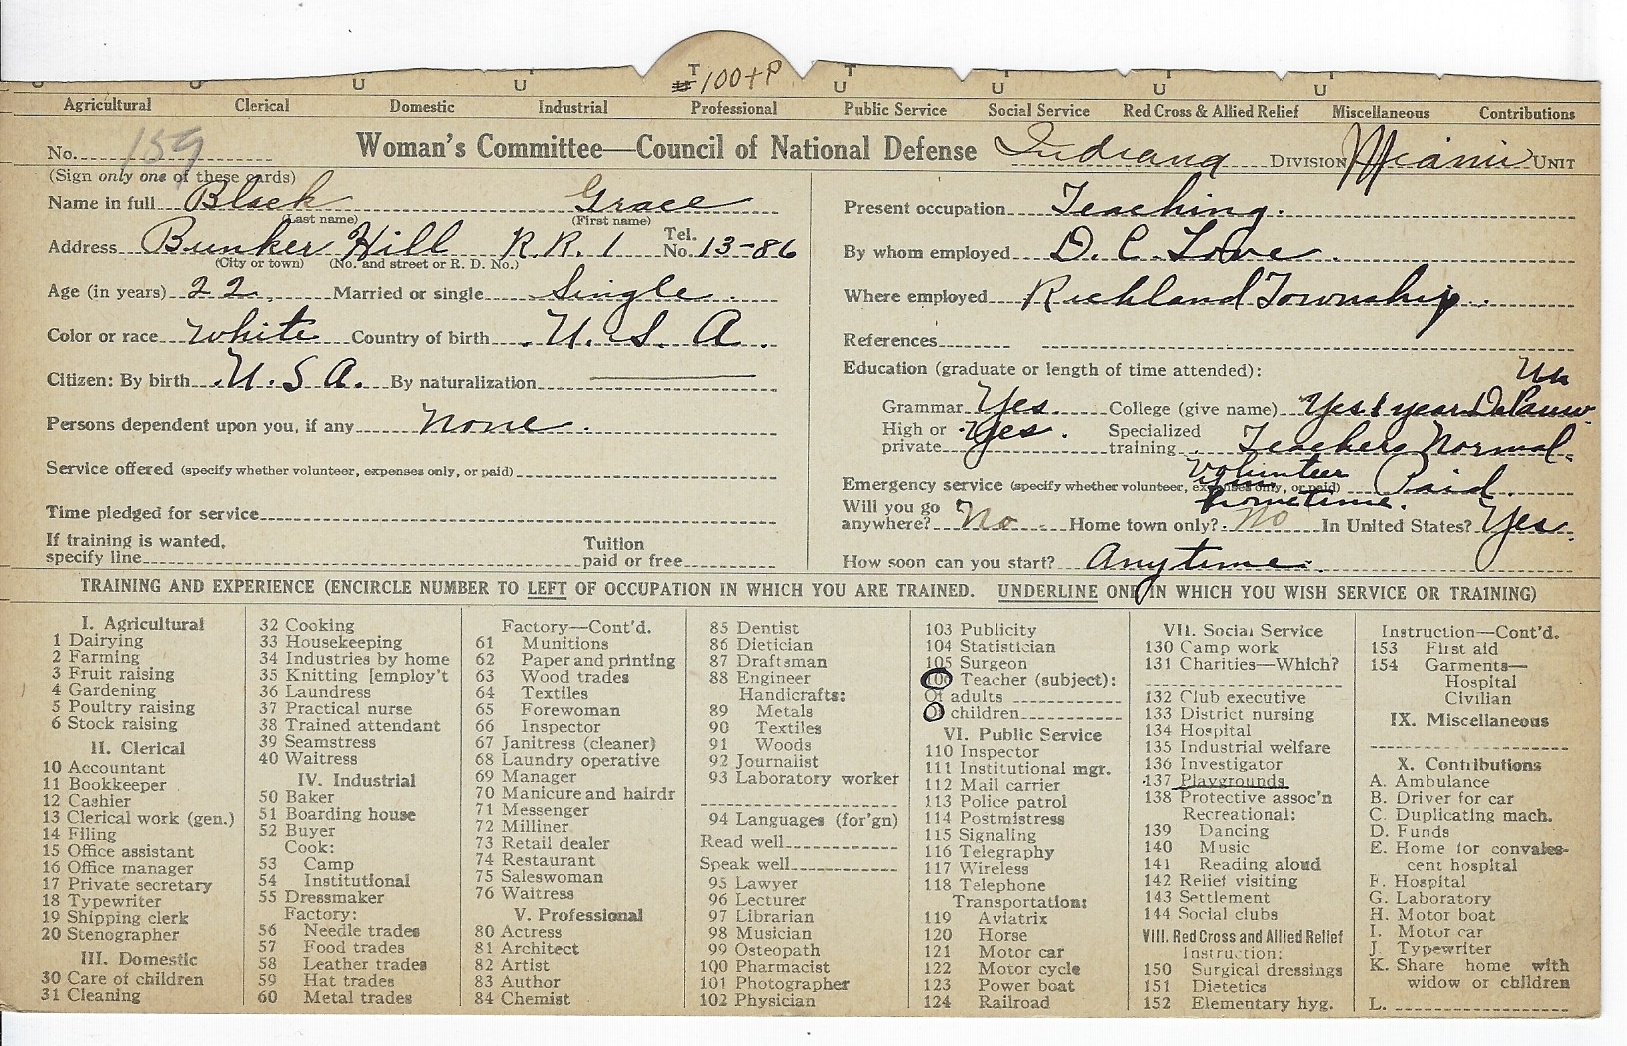 100+P
Agricultural Clerical Domestic Industrial Professional Public Service Social Service Red Cross & Allied Relief Miscellaneous Contributions
No. 159 Woman's Committee—Council of National Defense Indiana DIVISION Miami UNIT
(Sign only one of these cards)
Name in full Black Grace
(Last name) (First name)
Address Bunker Hill R.R. 1 Tel. No. 13-86
(City or town) (No. and street or R. D. No.)
Age (in years) 22 Married or single Single
Color or race White Country of birth U. S. A.
Citizen: By birth U. S. A. By naturalization
Persons dependent upon you, if any None.
Service offered (specify whether volunteer, expenses only, or paid)
Time pledged for service
If training is wanted, specify line Tuition paid or free
Present occupation Teaching.
By whom employed D. C. Love.
Where employed Richland Township.
References
Education (graduate or length of time attended):
Grammar Yes. College (give name) Yes 1 year DePauw Un
High or private Yes. Specialized training Teachers Normal.
Emergency service (specify whether volunteer, expenses only, or paid) Volunteer hometime. Paid.
Will you go anywhere? No Home town only? No In United States? Yes.
How soon can you start? Anytime.
TRAINING AND EXPERIENCE (ENCIRCLE NUMBER TO LEFT OF OCCUPATION IN WHICH YOU ARE TRAINED. UNDERLINE ONE IN WHICH YOU WISH SERVICE OR TRAINING)
I. Agricultural
1 Dairying
2 Farming
3 Fruit raising
4 Gardening
5 Poultry raising
6 Stock raising
II. Clerical
10 Accountant
11 Bookkeeper
12 Cashier
13 Clerical work (gen.)
14 Filing
15 Office assistant
16 Office manager
17 Private secretary
18 Typewriter
19 Shipping clerk
20 Stenographer
III. Domestic
30 Care of children
31 Cleaning
32 Cooking
33 Housekeeping
34 Industries by home
35 Knitting [employ't
36 Laundress
37 Practical nurse
38 Trained attendant
39 Seamstress
40 Waitress
IV. Industrial
50 Baker
51 Boarding house
52 Buyer
Cook:
53 Camp
54 Institutional
55 Dressmaker
Factory:
56 Needle trades
57 Food trades
58 Leather trades
59 Hat trades
60 Metal trades
Factory—Cont'd.
61 Munitions
62 Paper and printing
63 Wood trades
64 Textiles
65 Forewoman
66 Inspector
67 Janitress (cleaner)
68 Laundry operative
69 Manager
70 Manicure and hairdr
71 Messenger
72 Milliner
73 Retail dealer
74 Restaurant
75 Saleswoman
76 Waitress
V. Professional
80 Actress
81 Architect
82 Artist
83 Author
84 Chemist
85 Dentist
86 Dietician
87 Draftsman
88 Engineer
Handicrafts:
89 Metals
90 Textiles
91 Woods
92 Journalist
93 Laboratory worker
94 Languages (for'gn)
Read well
Speak well
95 Lawyer
96 Lecturer
97 Librarian
98 Musician
99 Osteopath
100 Pharmacist
101 Photographer
102 Physician
103 Publicity
104 Statistician
105 Surgeon
106 Teacher (subject):
Of adults
Of children
VI. Public Service
110 Inspector
111 Institutional mgr.
112 Mail carrier
113 Police patrol
114 Postmistress
115 Signaling
116 Telegraphy
117 Wireless
118 Telephone
Transportation:
119 Aviatrix
120 Horse
121 Motor car
122 Motor cycle
123 Power boat
124 Railroad
VII. Social Service
130 Camp work
131 Charities—Which?
132 Club executive
133 District nursing
134 Hospital
135 Industrial welfare
136 Investigator
137 Playgrounds
138 Protective assoc'n
Recreational:
139 Dancing
140 Music
141 Reading aloud
142 Relief visiting
143 Settlement
144 Social clubs
VIII. Red Cross and Allied Relief
Instruction:
150 Surgical dressings
151 Dietetics
152 Elementary hyg.
Instruction—Cont'd.
153 First aid
154 Garments—
Hospital
Civilian
IX. Miscellaneous
X. Contributions
A. Ambulance
B. Driver for car
C. Duplicating mach.
D. Funds
E. Home for convales-
cent hospital
F. Hospital
G. Laboratory
H. Motor boat
I. Motor car
J. Typewriter
K. Share home with
widow or children
L.